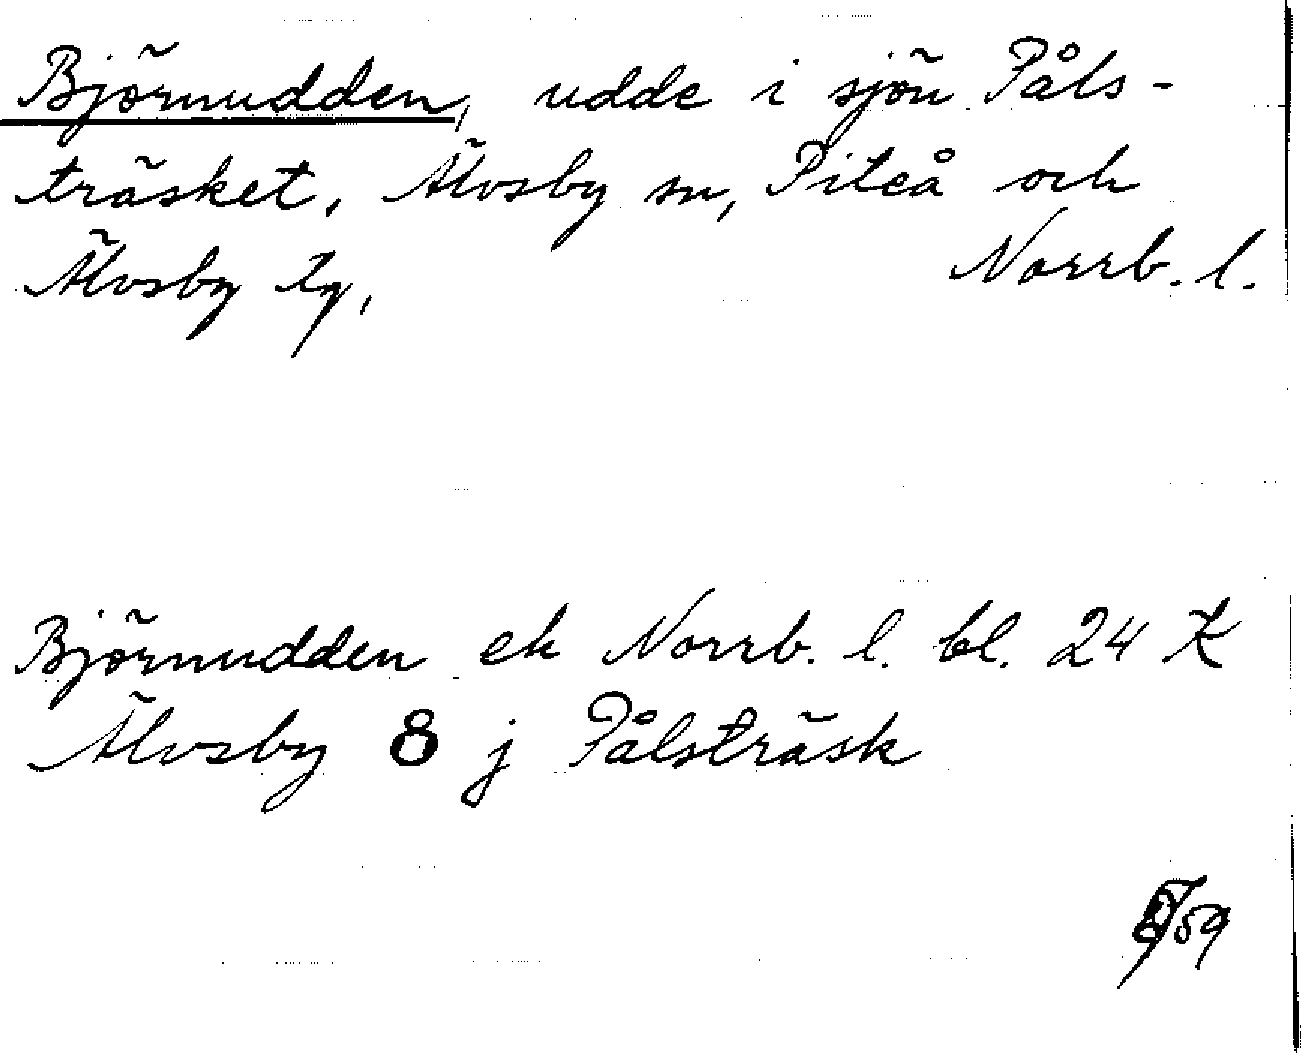 Björnudden, udde i sjön Påls-
träsket, Älvsby sn, Piteå och
Älvsby tg, Norrb. l.
Björnudden ek Norrb. l. bl. 24 K
Älvsby 8 j Pålsträsk
/59